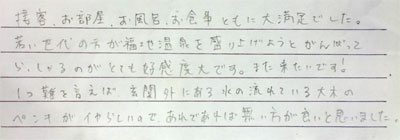 接客、お部屋、お風呂、お食事ともに大満足でした。
若い世代の方が福地温泉を盛り上げようとがんばって
らっしゃるのがとても好感度大です。また来たいです!
1つ難を言えば、玄関外にある水の流れている大木の
ペンキがイヤらしいので、あれであれば無い方が良いと思いました。